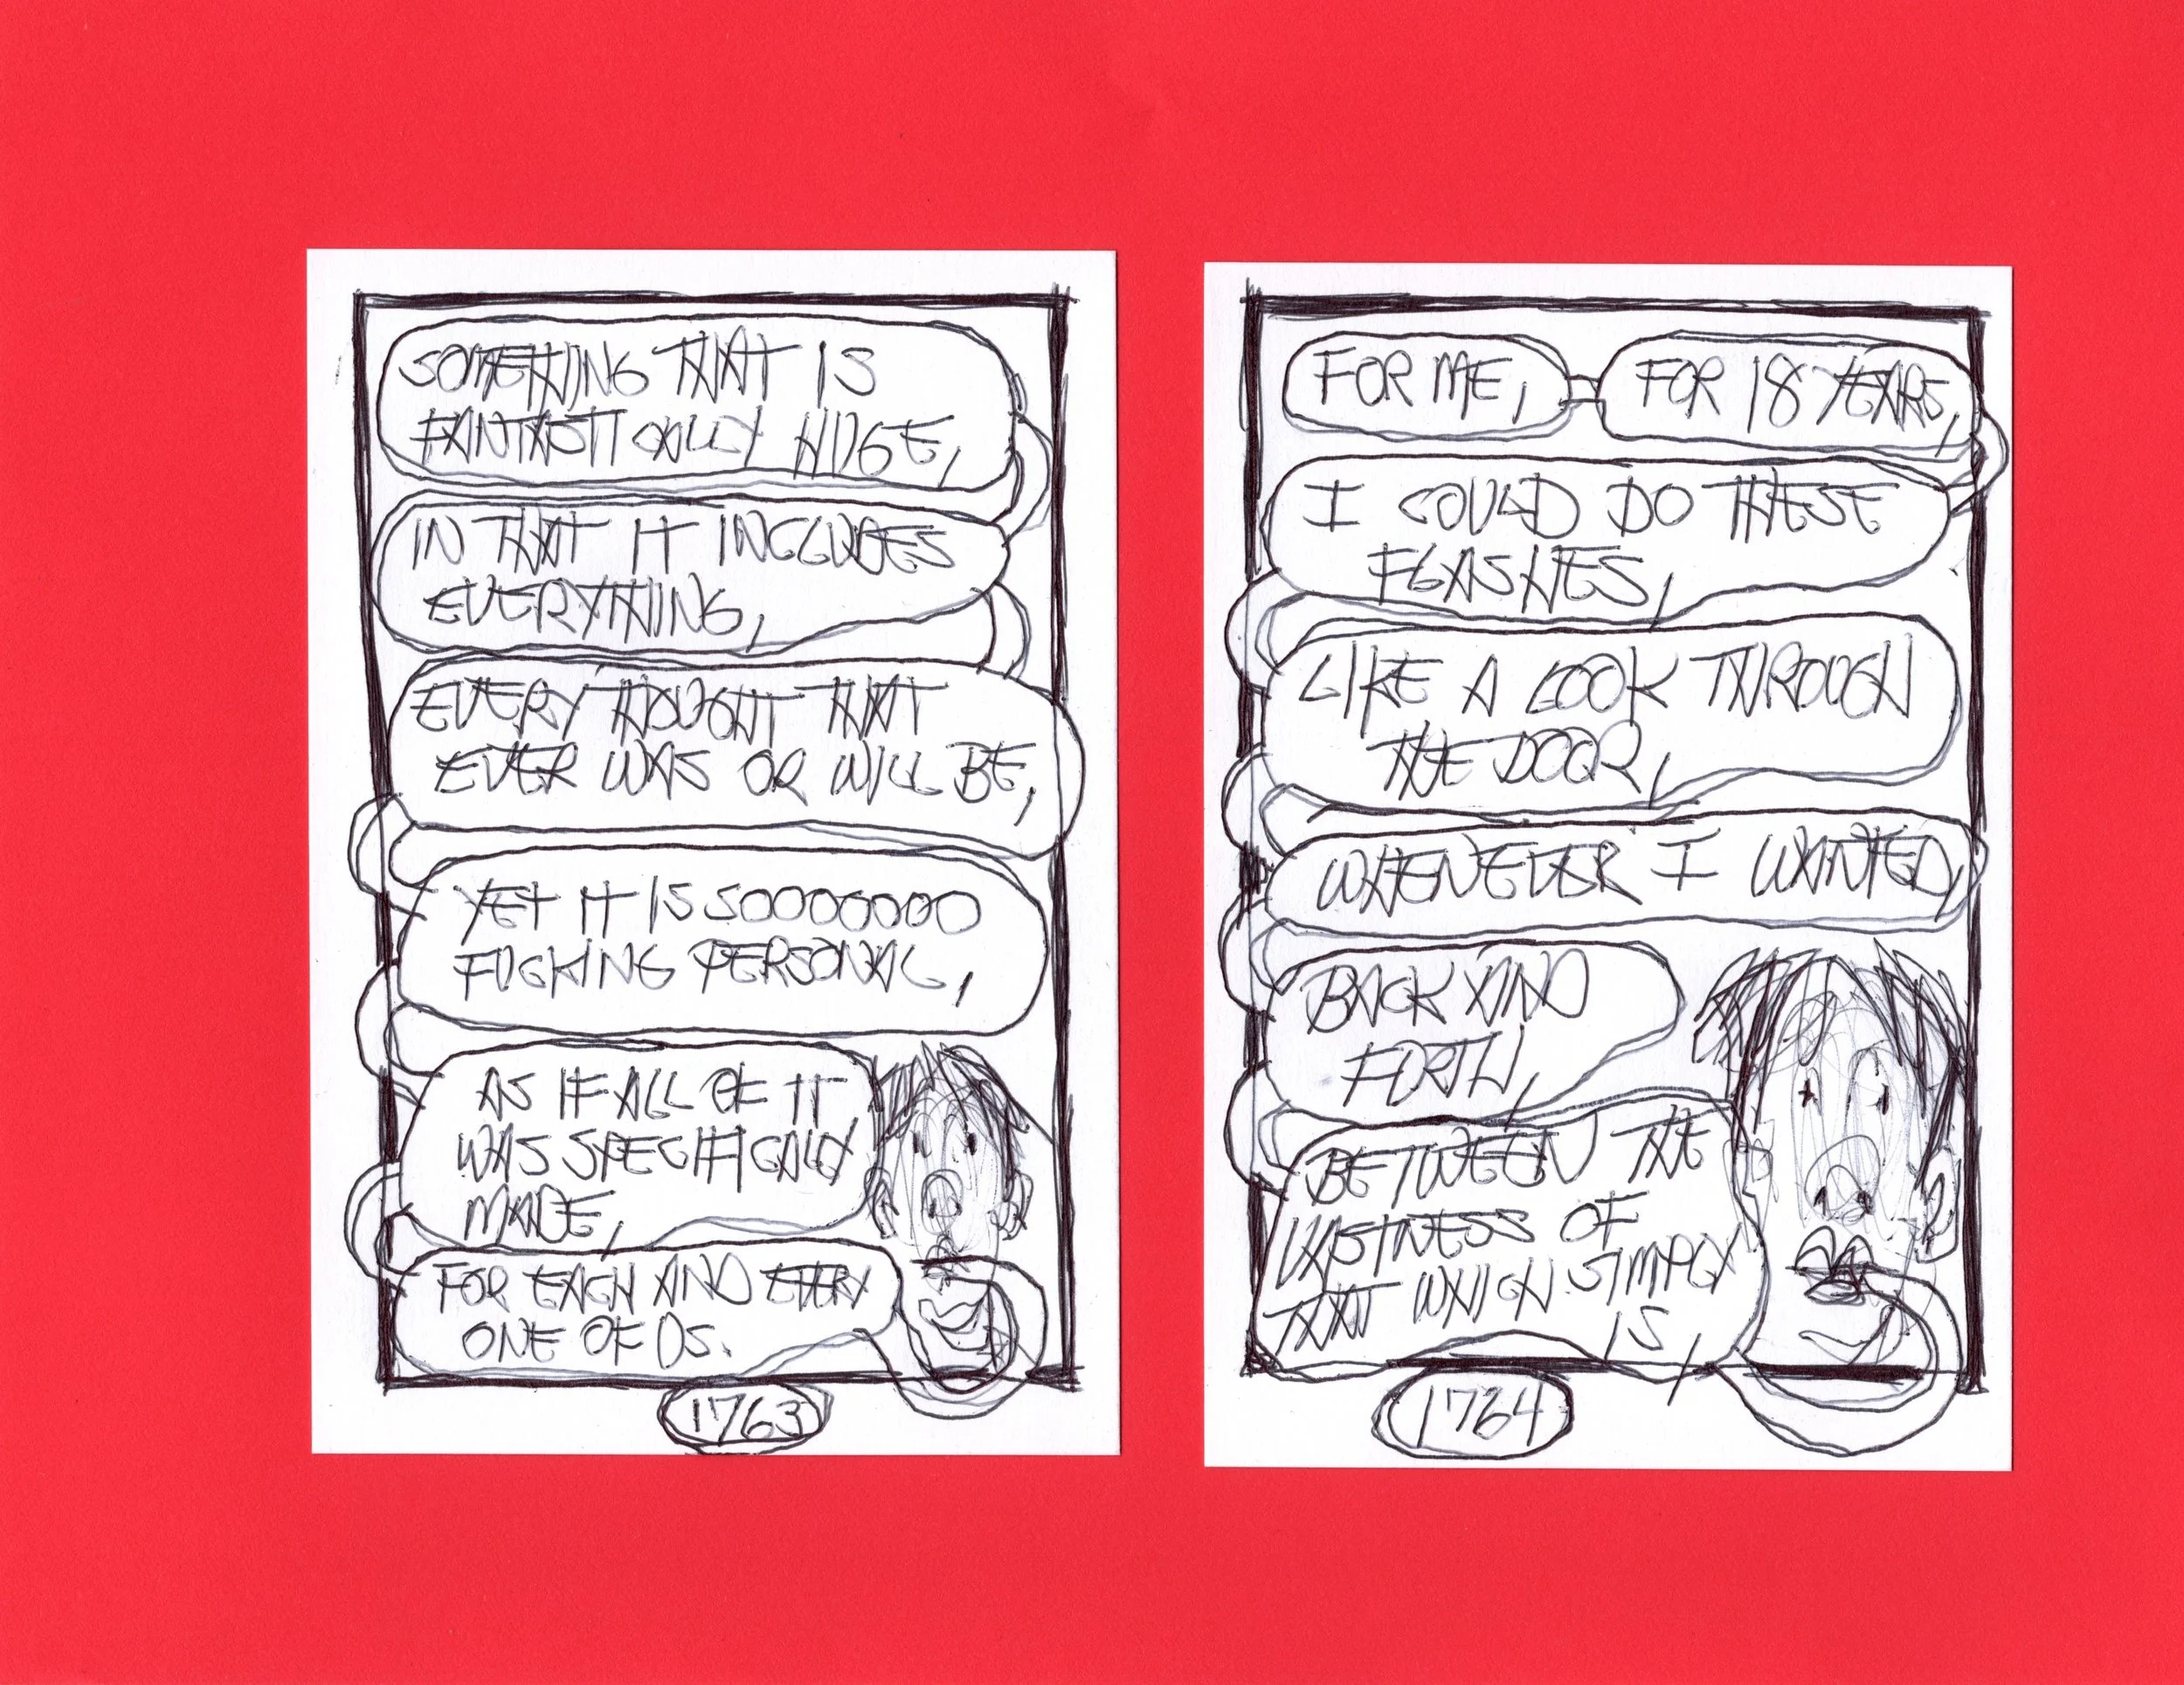 SOMETHING THAT IS
FANTASTICALLY HUGE,
IN THAT IT INCLUDES
EVERYTHING,
EVERY THOUGHT THAT
EVER WAS OR WILL BE,
YET IT IS SOOOOOOO
FUCKING PERSONAL,
AS IF ALL OF IT
WAS SPECIFICALLY
MADE,
FOR EACH AND EVERY
ONE OF US.
1763
FOR ME,
FOR 18 YEARS,
I COULD DO THESE
FLASHES,
LIKE A LOOK THROUGH
THE DOOR,
WHENEVER I WANTED,
BACK AND
FORTH,
BETWEEN THE
VASTNESS OF
THAT WHICH SIMPLY
IS,
1764